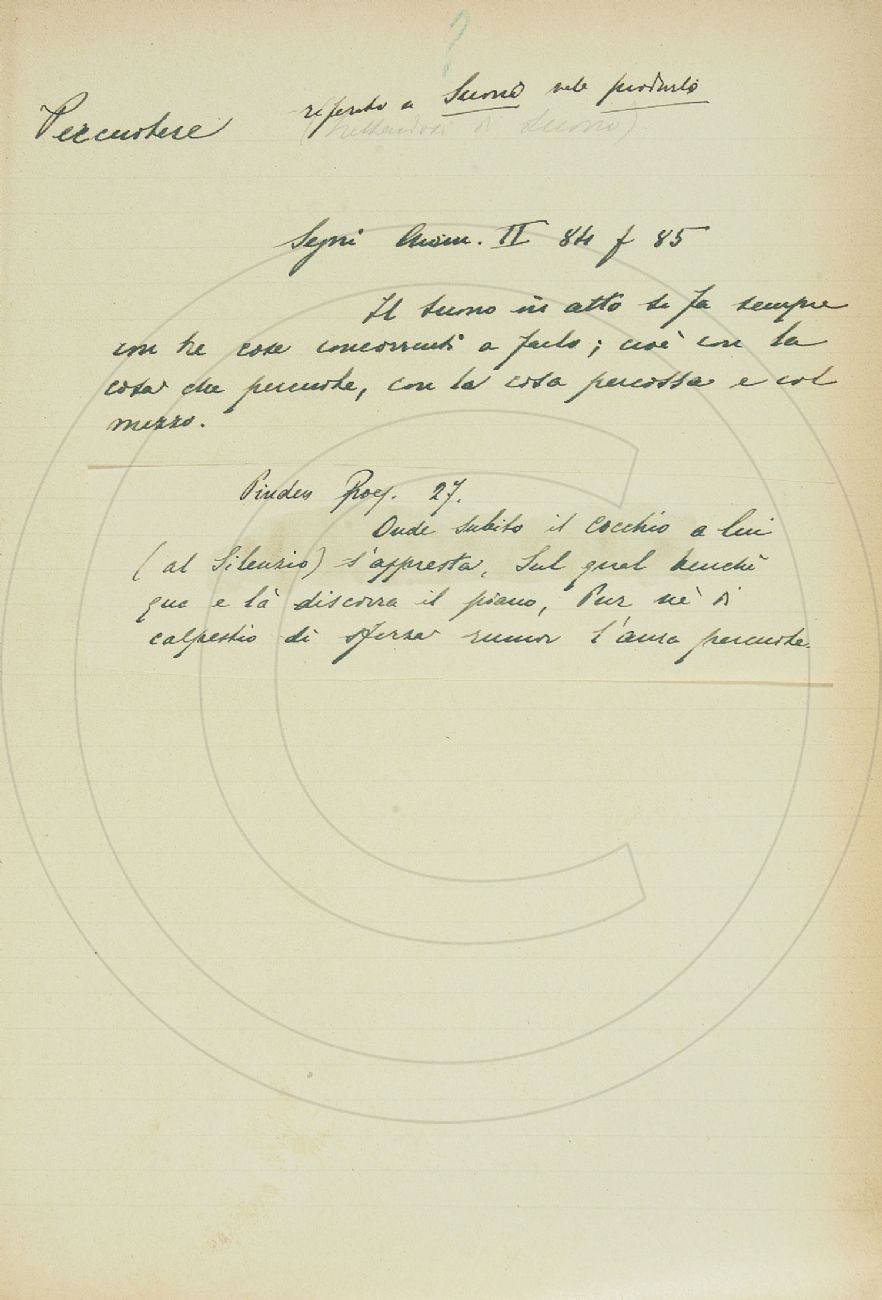 ?
Percuotere riferito a Suono vale produrlo
(trattandosi di Suono)
Segni Anim. II 84 f 85
Il suono in atto si fa sempre
con tre cose concorrenti a farlo; cioè con la
cosa che percuote, con la cosa percossa e col
mezzo.
Pindem Poes. 27.
Onde subito il cocchio a lui
(al Silenzio) s'appresta, Sul qual benchè
qua e là discorra il piano, Pur nè di
calpestio di sferza rumor l'aura percuote.